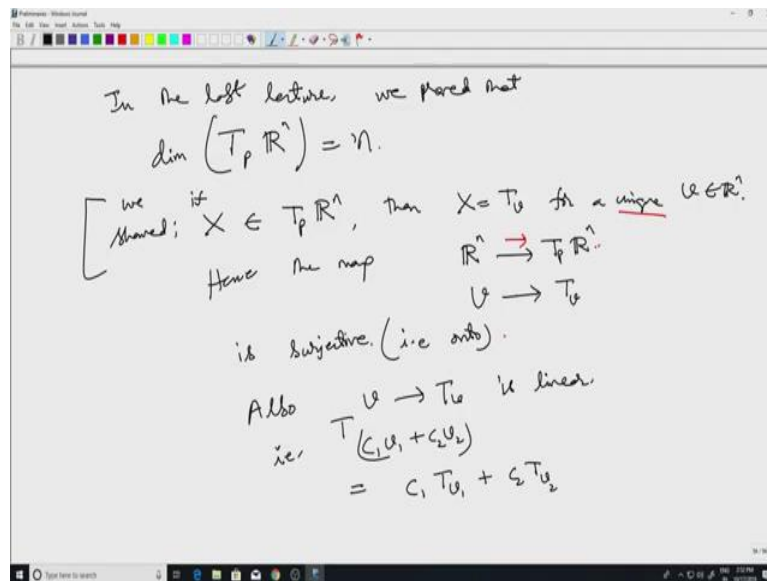 Preliminaries - Windows Journal
File Edit View Insert Actions Tools Help
In the last lecture, we proved that
dim (T_p ℝⁿ) = n.
we showed; if X ∈ T_p ℝⁿ, then X = T_v for a unique v ∈ ℝⁿ.
Hence the map ℝⁿ → T_p ℝⁿ.
v → T_v
is surjective. (i.e onto).
Also v → T_v is linear.
i.e. T_(c₁v₁ + c₂v₂)
= c₁ T_v₁ + c₂ T_v₂
Type here to search